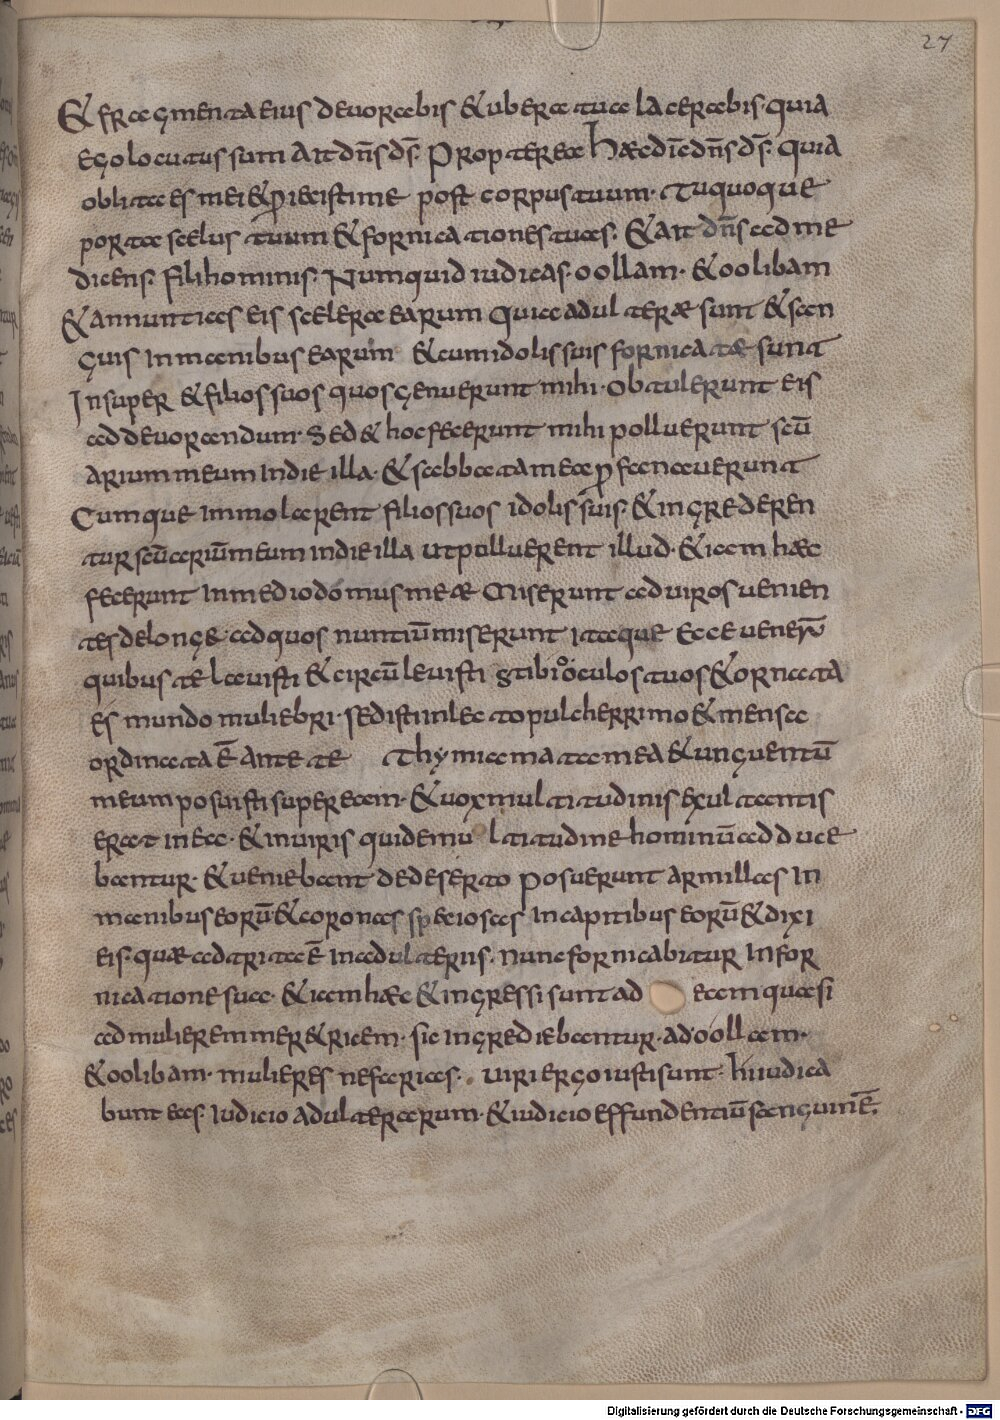 27
& fragmenta eius deuorabis & ubera tua lacerabis· quia
ego locutus sum ait dn̄s d̄s. Propterea haec dic̄ dn̄s d̄s. quia
oblita es mei & ꝓiecisti me post corpus tuum· Tu quoque
porta scelus tuum & fornicationes tuas. & ait dn̄s ad me
dicens. fili hominis. Numquid iudicas· oollam· & oolibam
& annuntias eis scelera earum Quia adulteræ sunt & san
guis in manibus earum & cum idolis suis fornicatæ sunt
Insuper & filios suos quos genuerunt mihi· obtulerunt eis
ad deuorandum· Sed & hoc fecerunt mihi polluerunt scū
arium meum in die illa· & sabbata mea ꝓfanauerunt
Cumque immolarent filios suos idolis suis. & ingrederen
tur scūariūmeum in die illa ut polluerent illud· & iam hæc
fecerunt in medio domus meæ Miserunt ad uiros uenien
tes de longe ad quos nuntiū miserunt itaque Ecce uener̄
quibus te lauisti & circūleuisti stibio oculos tuos & ornata
es mundo muliebri· sedisti in lecto pulcherrimo & mensa
ordinata ē ante te Thymiama ta mea & unguentū
meum posuisti super eam· & uox multitudinis exultantis
erat in ea· & in uiris qui de multitudine hominū adduce
bantur· & ueniebant de deserto posuerunt armillas in
manibus eorū & coronas speciosas in capitibus eorū & dixi
eis· quæ adtrita ē in adulteriis· nunc fornicabitur in for
nicatione sua· & iam hæc & ingressi sunt ad eam quasi
ad mulierem mer&ricem· sic ingrediebantur· ad oollam·
& oolibam· mulieres nefarias· uiri ergo iusti sunt· hi iudica
bunt eas. iudicio adulterarum· & iudicio effundentiū sanguinē·
Digitalisierung gefördert durch die Deutsche Forschungsgemeinschaft - DFG